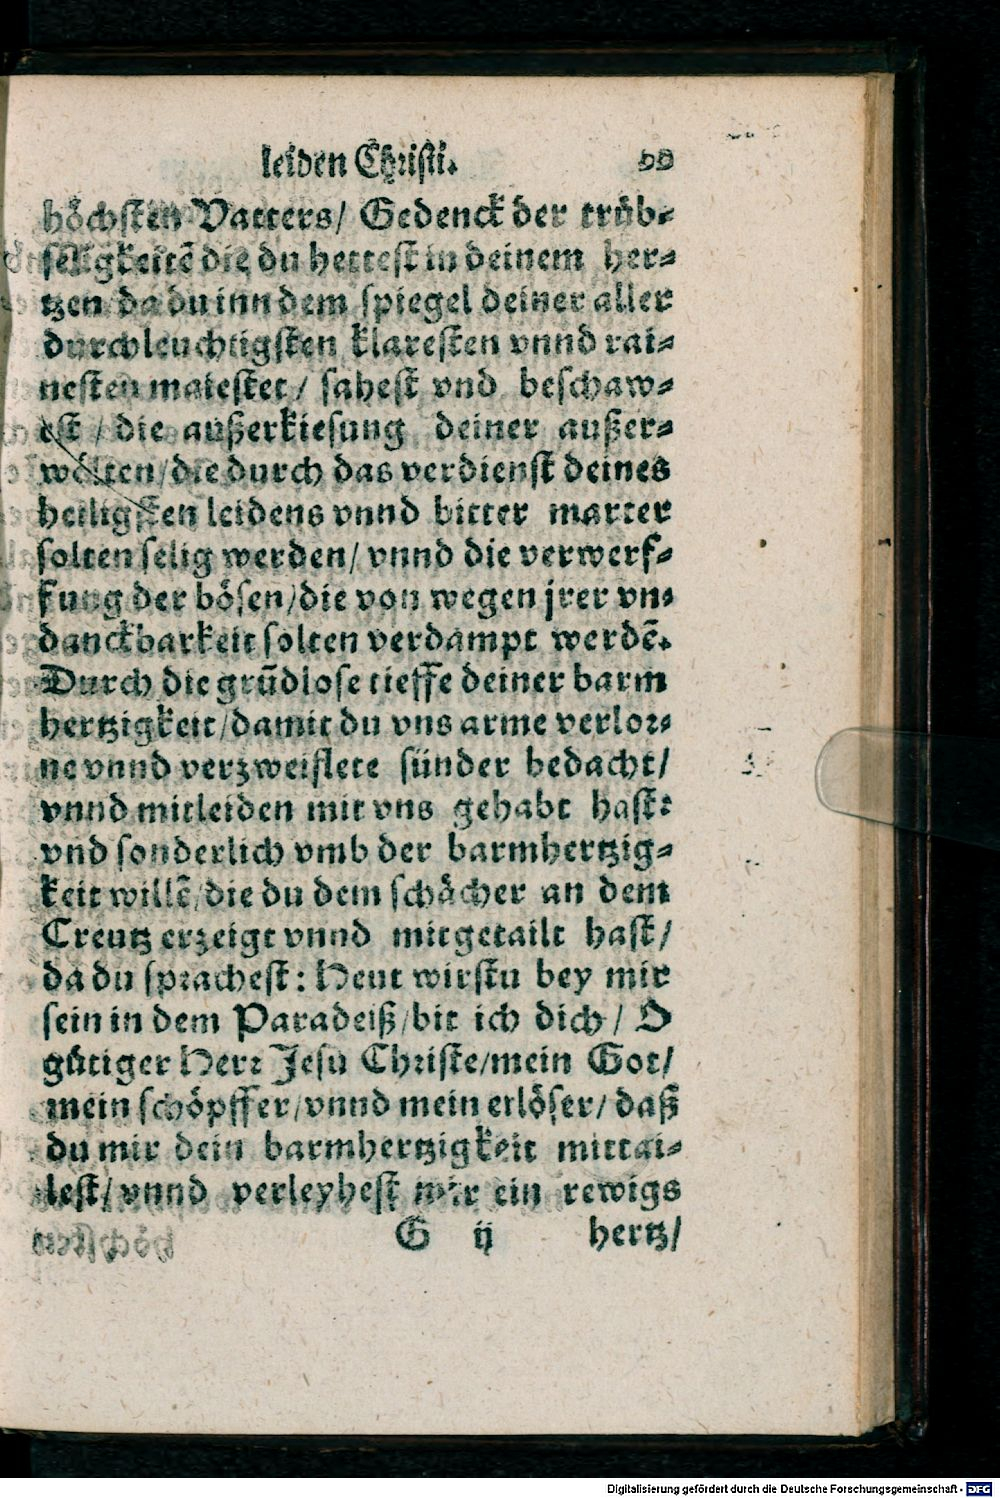 leiden Christi. 99
höchsten Vatters/ Gedenck der trüb⸗
seligkeitẽ die du hettest in deinem her⸗
tzen/ da du inn dem spiegel deiner aller
durchleuchtigsten klaresten vnnd rai⸗
nesten maiestet/ sahest vnd beschaw⸗
est/ die außerkiesung deiner außer⸗
wölten/ die durch das verdienst deines
heiligsten leidens vnnd bitter marter
solten selig werden/ vnnd die verwerf⸗
fung der bösen/ die von wegen jrer vn⸗
danckbarkeit solten verdampt werdẽ.
Durch die grũdlose tieffe deiner barm
hertzigkeit/ damit du vns arme verlor⸗
ne vnnd verzweiflete sünder bedacht/
vnnd mitleiden mit vns gehabt hast:
vnd sonderlich vmb der barmhertzig⸗
keit willẽ/ die du dem schächer an dem
Creutz erzeigt vnnd mitgetailt hast/
da du sprachest: Heut wirstu bey mir
sein in dem Paradeiß/ bit ich dich/ O
gütiger Herr Jesu Christe/ mein Got/
mein schöpffer/ vnnd mein erlöser/ daß
du mir dein barmhertzigkeit mittai⸗
lest/ vnnd verleyhest mir ein rewigs
G ij hertz/
Digitalisierung gefördert durch die Deutsche Forschungsgemeinschaft - DFG